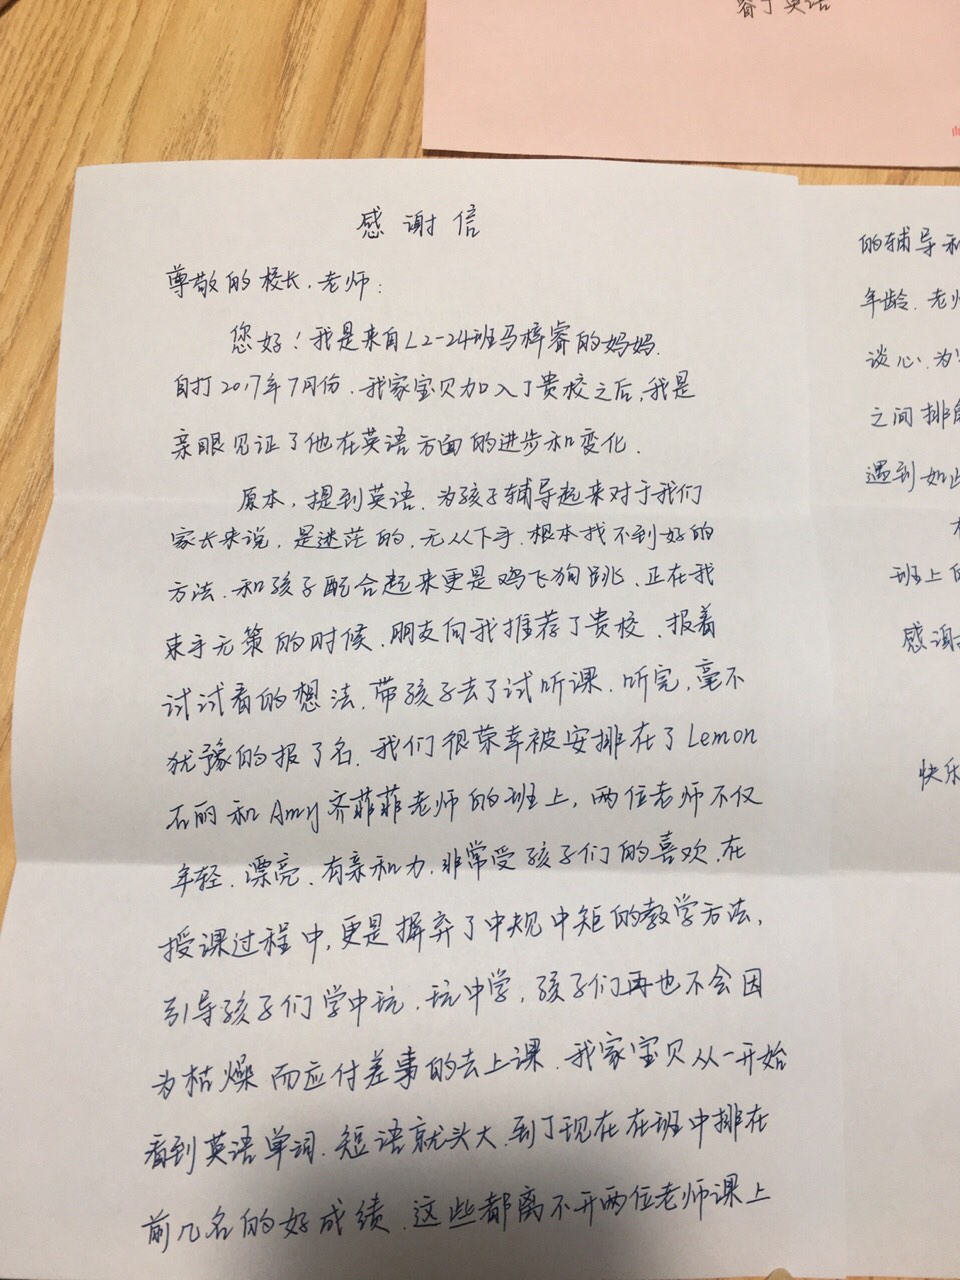 睿丁英语
感谢信
尊敬的校长、老师:
您好!我是来自L2-24班马梓睿的妈妈.
自打2017年7月份、我家宝贝加入了贵校之后,我是
亲眼见证了他在英语方面的进步和变化.
原本,提到英语、为孩子辅导起来对于我们
家长来说、是迷茫的、无从下手、根本找不到好的
方法、和孩子配合起来更是鸡飞狗跳、正在我
束手无策的时候、朋友向我推荐了贵校、报着
试试看的想法、带孩子去了试听课、听完,毫不
犹豫的报了名、我们很荣幸被安排在了Lemon
石丽和Amy齐菲菲老师的班上,两位老师不仅
年轻、漂亮、有亲和力、非常受孩子们的喜欢、在
授课过程中,更是摒弃了中规中矩的教学方法,
引导孩子们学中玩、玩中学,孩子们再也不会因
为枯燥而应付差事的去上课、我家宝贝从一开始
看到英语单词、短语就头大、到了现在在班中排在
前几名的好成绩、这些都离不开两位老师课上
的辅导和
年龄、老师
谈心、为
之间排
遇到如此
班上的
感谢
快乐